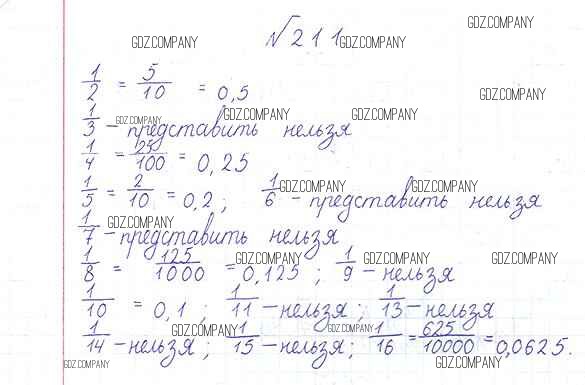 GDZ.COMPANY
№ 211 GDZ.COMPANY
GDZ.COMPANY
1/2 = 5/10 = 0,5 GDZ.COMPANY
1/3 - представить нельзя GDZ.COMPANY GDZ.COMPANY GDZ.COMPANY
1/4 = 25/100 = 0,25
1/5 = 2/10 = 0,2; 1/6 - представить нельзя GDZ.COMPANY GDZ.COMPANY
1/7 - представить нельзя GDZ.COMPANY
1/8 = 125/1000 = 0,125; 1/9 - нельзя GDZ.COMPANY GDZ.COMPANY GDZ.COMPANY
1/10 = 0,1; 1/11 - нельзя; 1/13 - нельзя
1/14 - нельзя; 1/15 - нельзя; 1/16 = 625/10000 = 0,0625. GDZ.COMPANY GDZ.COMPANY
GDZ.COMPANY GDZ.COMPANY